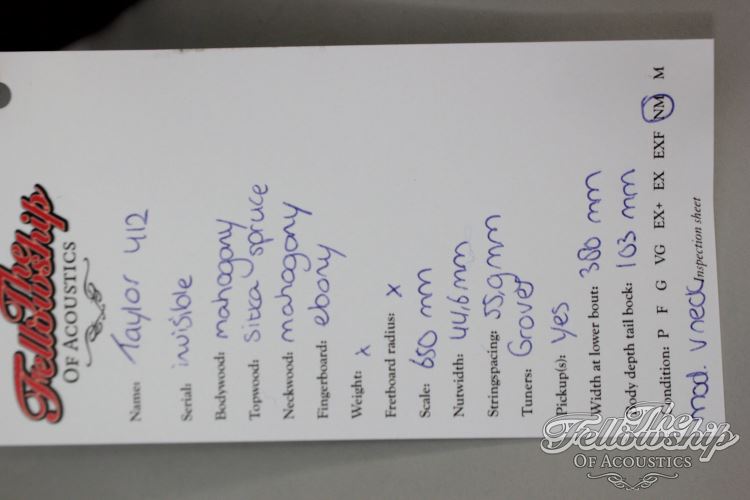 The
Fellowship
OF ACOUSTICS
Name: Taylor 412
Serial: invisible
Bodywood: mahogany
Topwood: Sitka spruce
Neckwood: mahogany
Fingerboard: ebony
Weight: x
Fretboard radius: x
Scale: 650 mm
Nutwidth: 44,6 mm
Stringspacing: 55,9 mm
Tuners: Grover
Pickup(s): yes
Width at lower bout: 380 mm
Body depth tail bock: 103 mm
Condition: P F G VG EX+ EX EXF NM M
mod. V neck Inspection sheet
The
Fellowship
OF ACOUSTICS